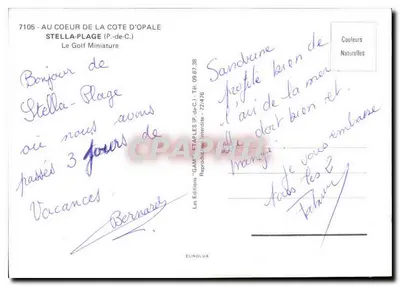 7105 - AU COEUR DE LA COTE D'OPALE
STELLA-PLAGE (P.-de-C.)
Le Golf Miniature
Bonjour de
Stella-Plage
où nous avons
passés 3 jours de
Vacances.
Bernard
Les Editions "GAM" ETAPLES (P.-de-C.) Tél. 09.67.38
Reproduction interdite - 72/476
Couleurs
Naturelles
Sandrine
profite bien de
l'air de la mer.
dort bien et
mange.
Je vous embrasse
tous les 2
EUROLUX
CPARAMA.COM